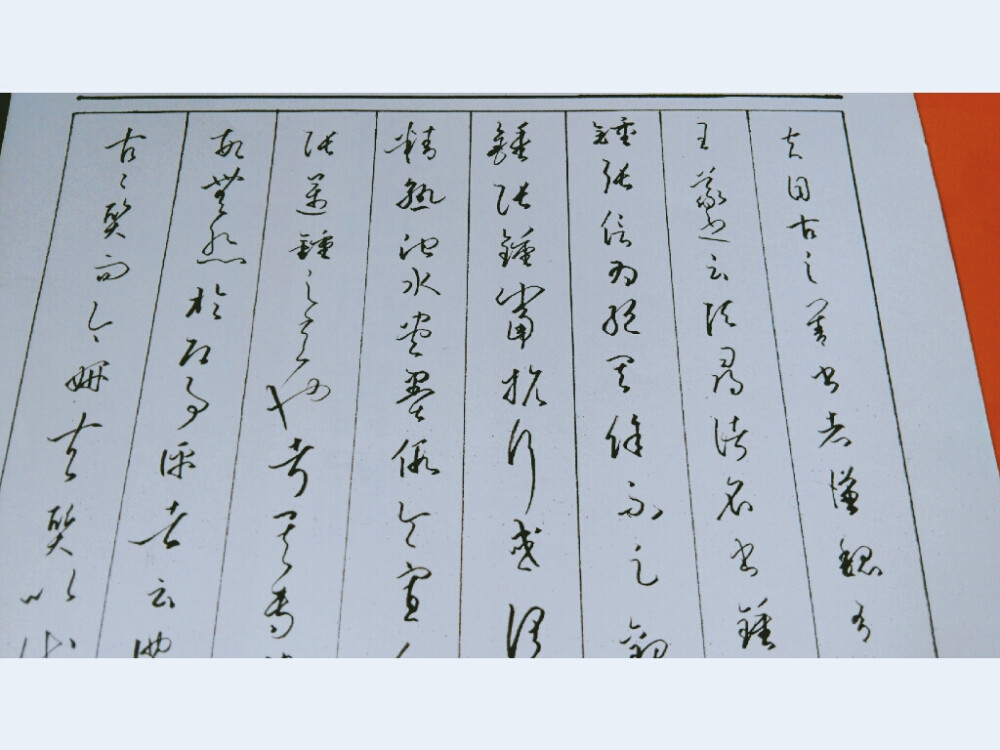 夫自古之善書者漢魏有
王羲之云頃尋諸名書鍾
鍾張信為絕其餘不足觀
鍾張鍾當抗行或謂
精熟池水盡墨假令寡人
張邁鍾之意也考其專
故無慚於即事評者云彼
古〻質而今〻妍夫質以代